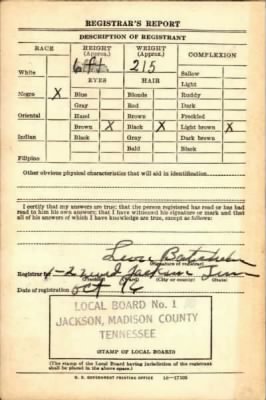 REGISTRAR'S REPORT
DESCRIPTION OF REGISTRANT
RACE HEIGHT (Approx.) WEIGHT (Approx.) COMPLEXION
White 6 ft. 215 Sallow
EYES HAIR Light
Negro X Blue Blonde Ruddy
Gray Red Dark
Oriental Hazel Brown Freckled
Brown X Black X Light brown X
Indian Black Gray Dark brown
Bald Black
Filipino
Other obvious physical characteristics that will aid in identification
I certify that my answers are true; that the person registered has read or has had read to him his own answers; that I have witnessed his signature or mark and that all of his answers of which I have knowledge are true, except as follows:
(Signature of registrar)
Registrar Jackson Tenn
(City or county) (State)
Date of registration Oct 16
LOCAL BOARD No. 1
JACKSON, MADISON COUNTY
TENNESSEE
(STAMP OF LOCAL BOARD)
(The stamp of the Local Board having jurisdiction of the registrant shall be placed in the above space.)
U. S. GOVERNMENT PRINTING OFFICE 16—17105